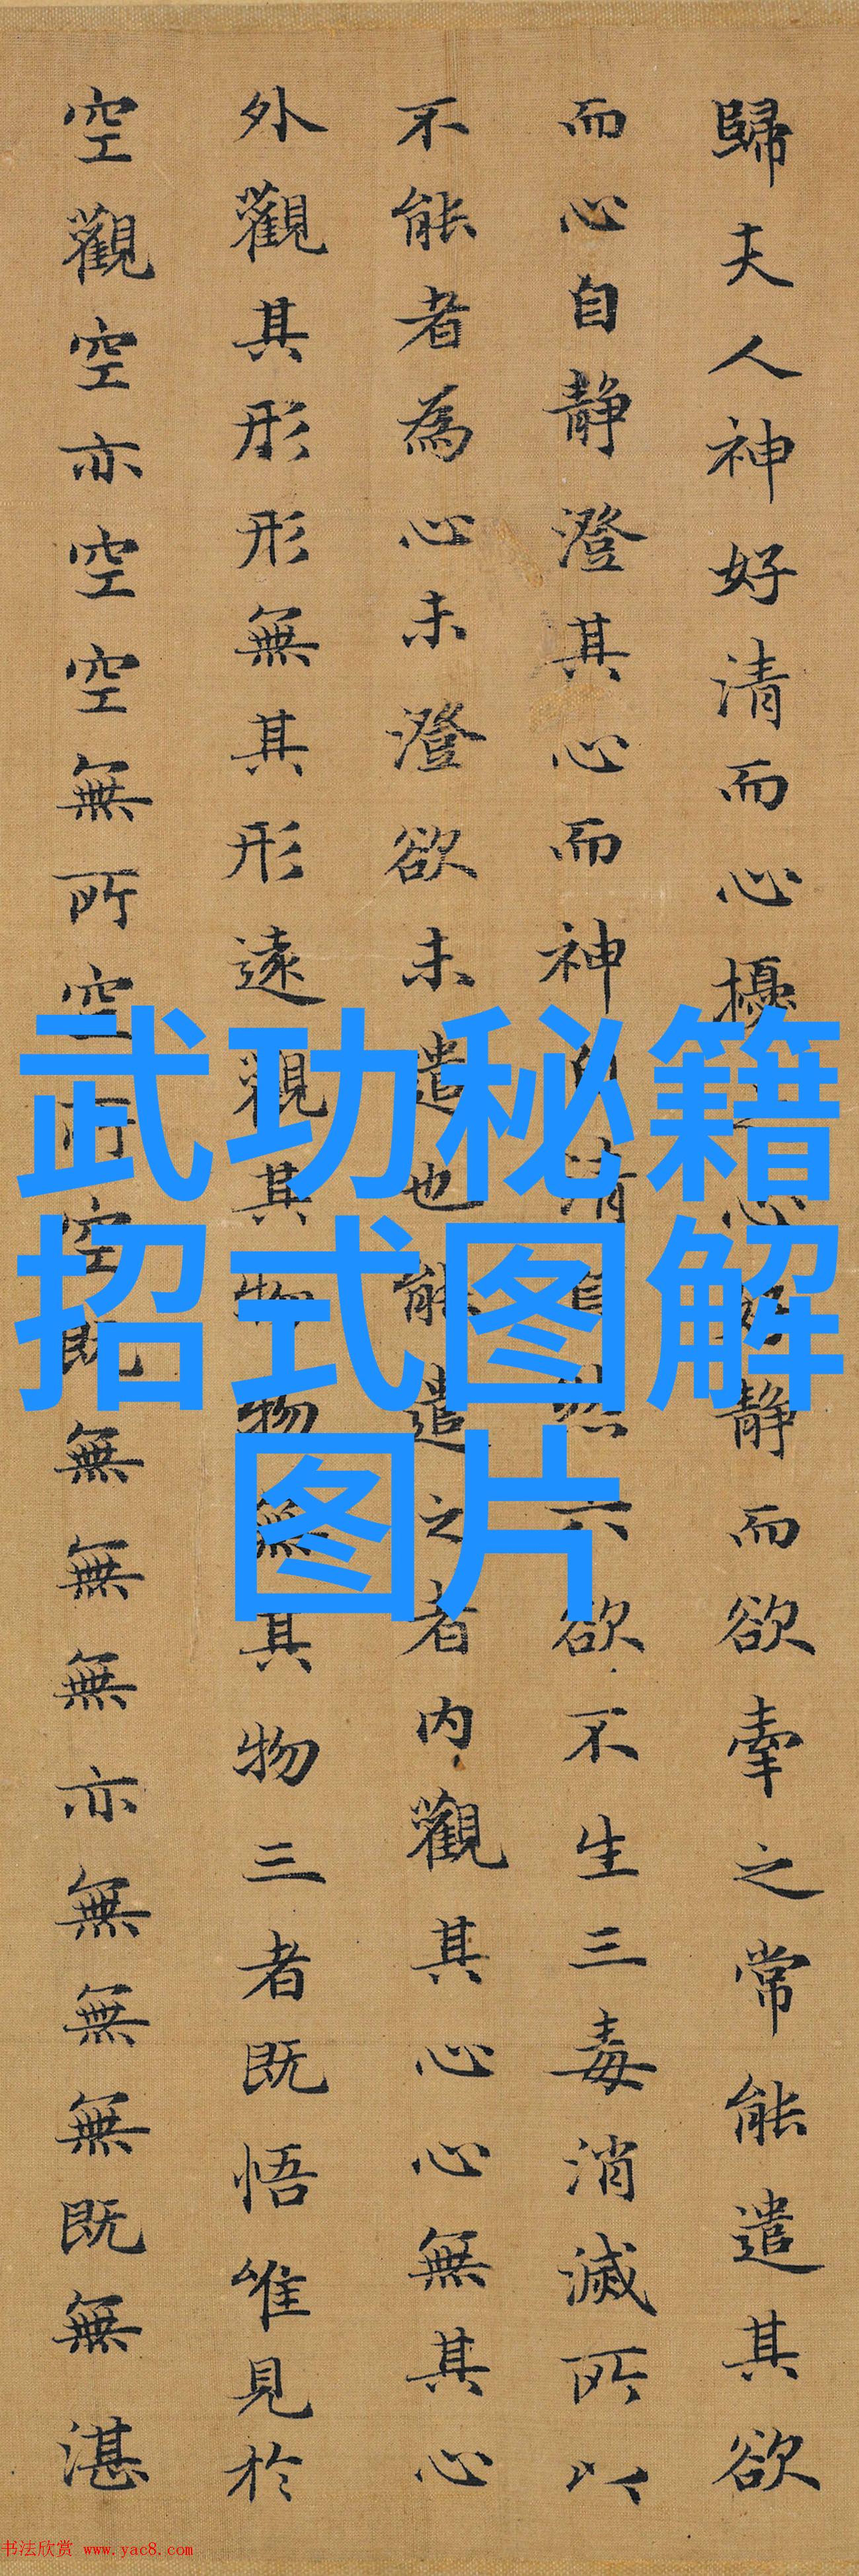 歸夫人神好清而心擾之心好静而欲牽之常能遣其欲
而心自静澄其心而神自清自然六欲不生三毒消滅所以
不能者為心未澄欲未遣也能遣之者内觀其心心無其心
外觀其形形無其形遠觀其物物無其物三者既悟唯見於
空觀空亦空空無所空所空既無無無亦無無無既無湛
武功秘籍
招式图解
图片
书法欣赏 www.yac8.com